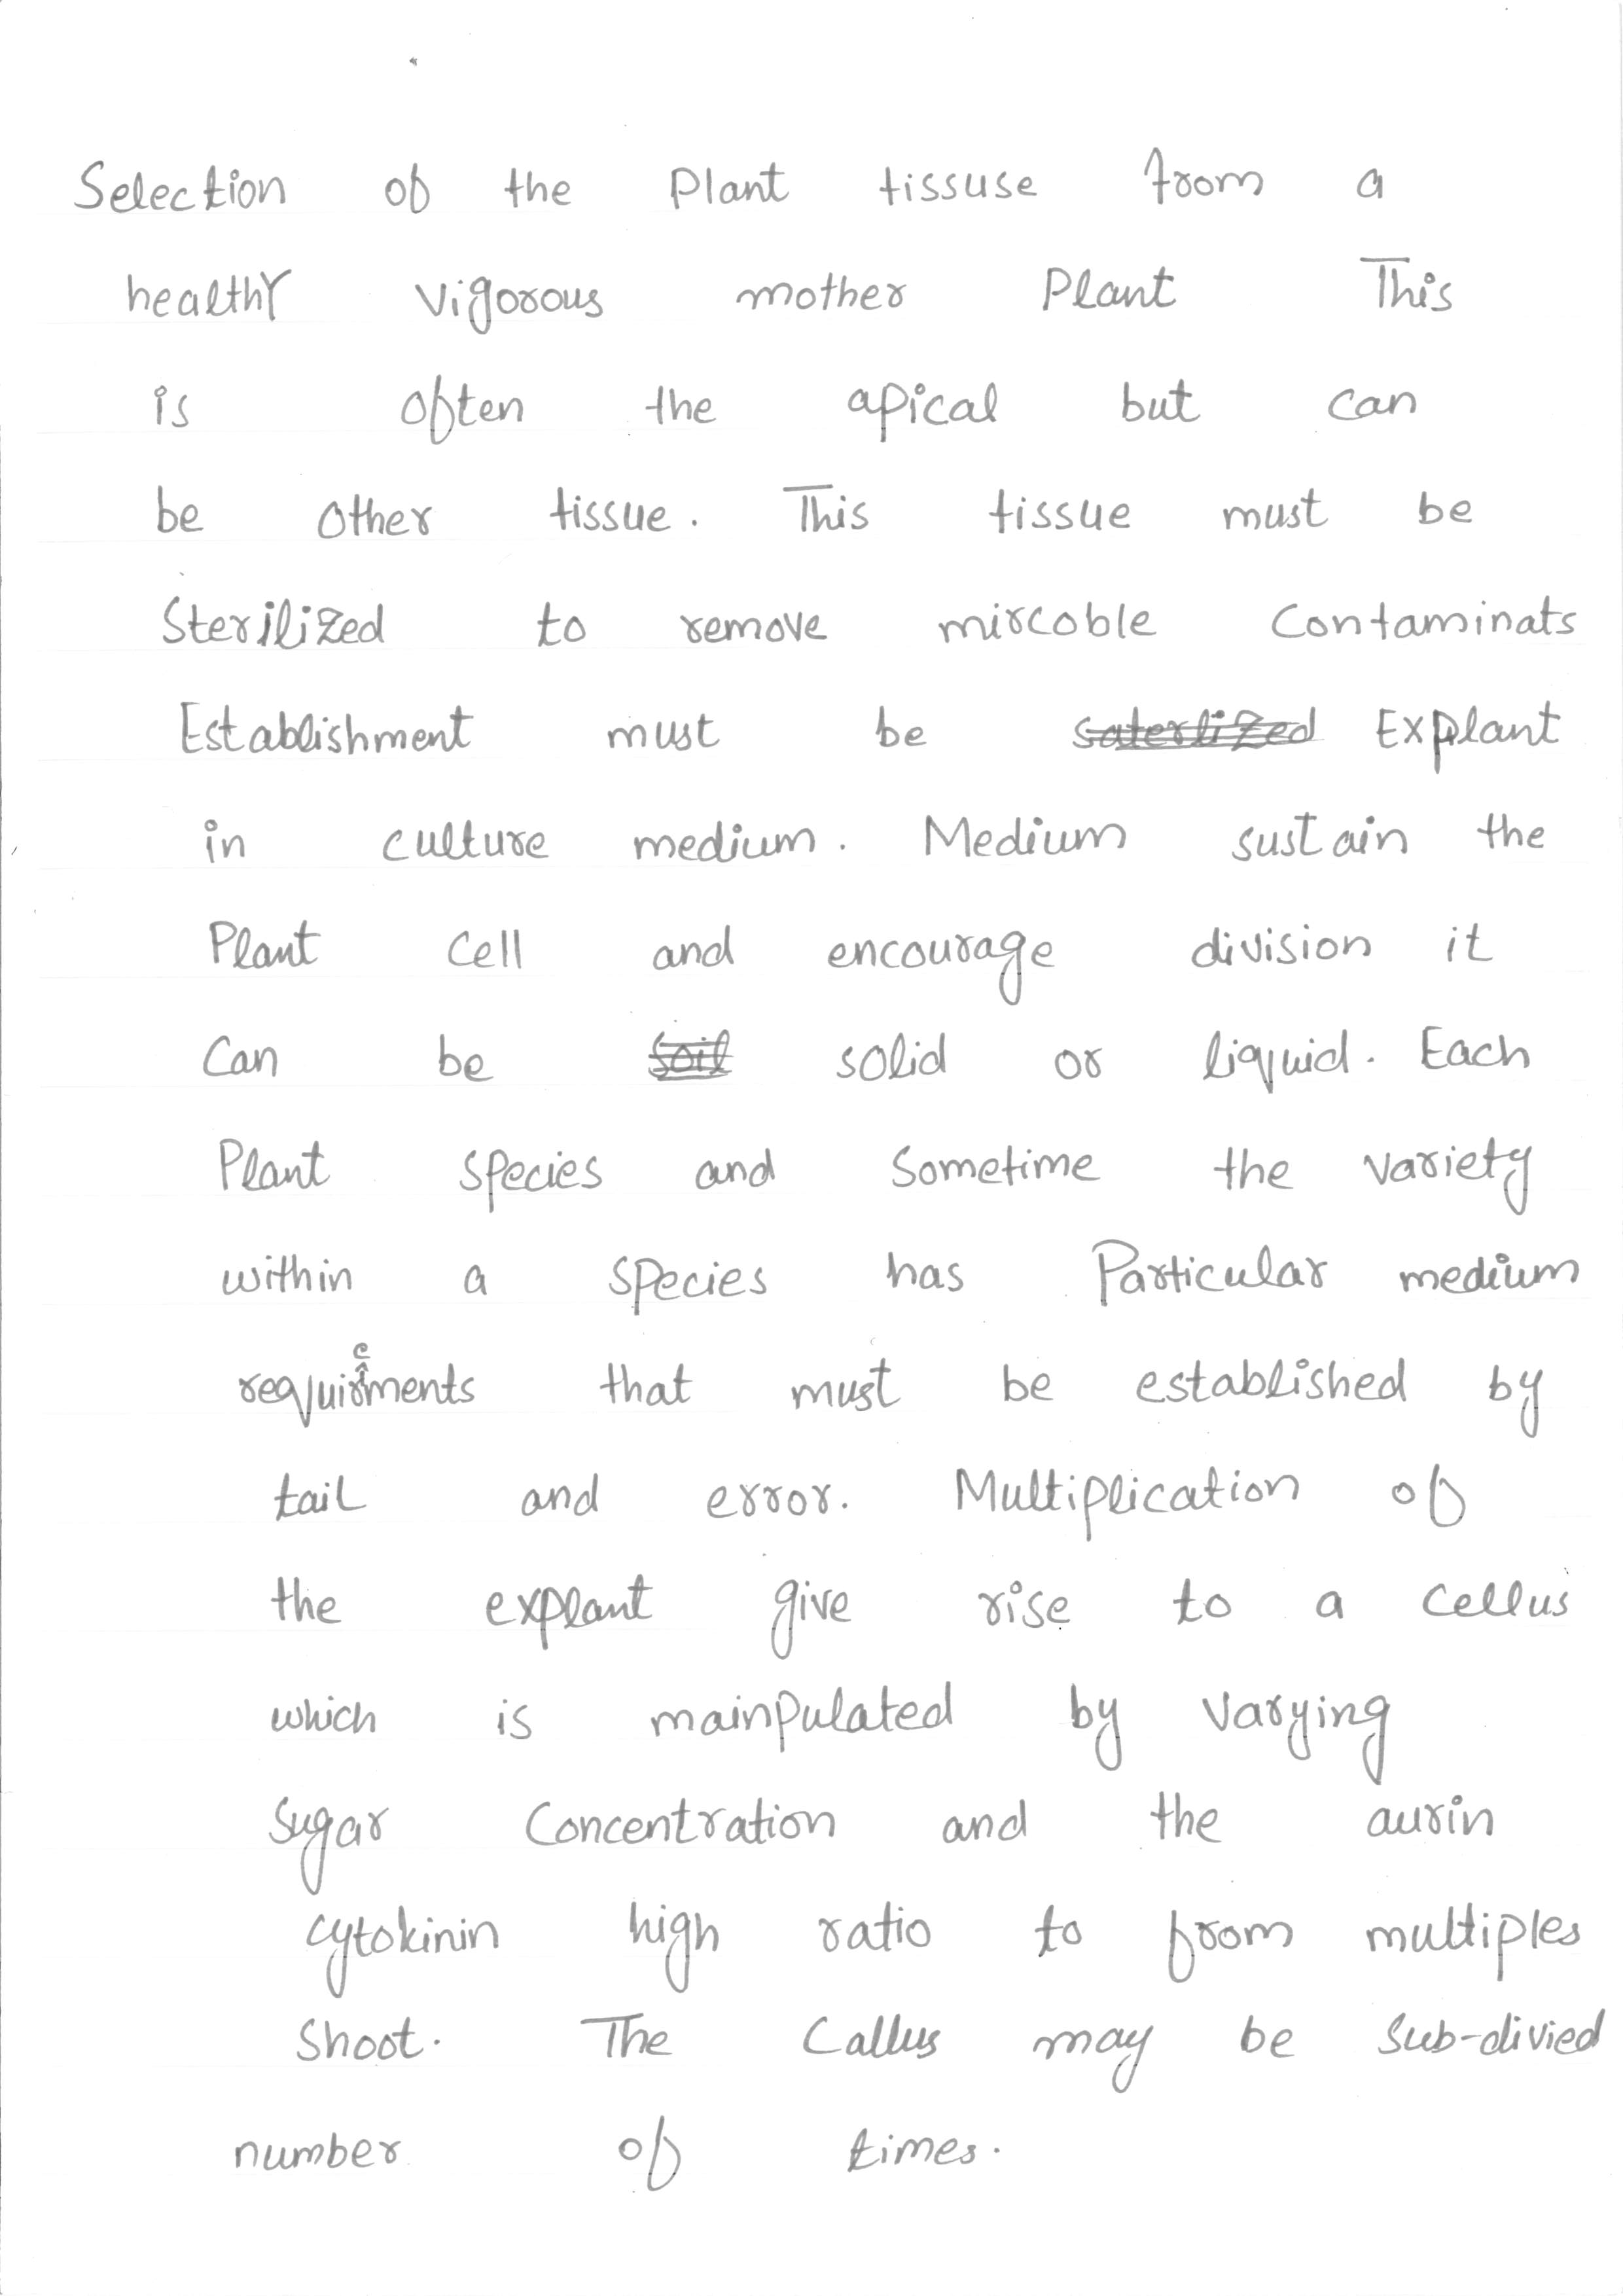 Selection of the Plant tissuse from a
healthy vigorous mother Plant This
is often the apical but can
be other tissue. This tissue must be
Sterilized to remove mircoble Contaminats
Establishment must be ~~saterlized~~ Explant
in culture medium. Medium sustain the
Plant cell and encourage division it
Can be ~~soil~~ solid or liquid. Each
Plant species and Sometime the variety
within a species has Particular medium
requirements that must be established by
tail and error. Multiplication of
the explant give rise to a cellus
which is mainpulated by varying
Sugar Concentration and the aurin
cytokinin high ratio to from multiples
Shoot. The Callus may be Sub-divied
number of times.